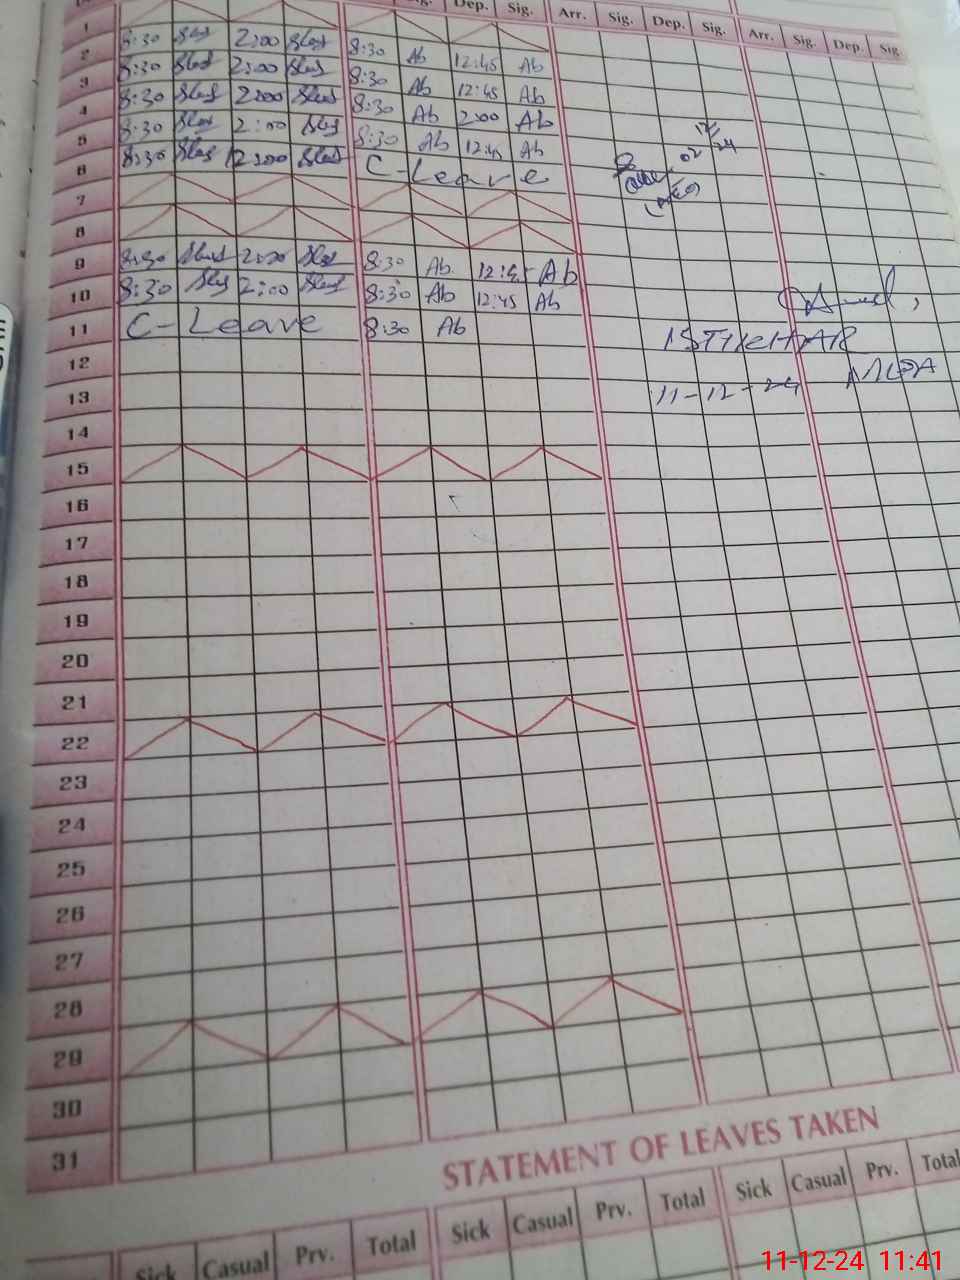 Sig. Dep. Sig. Arr. Sig. Dep. Sig. Arr. Sig. Dep. Sig.
1
2 8:30 2:00 8:30 Ab 12:45 Ab
3 8:30 2:00 8:30 Ab 12:45 Ab
4 8:30 2:00 8:30 Ab 2:00 Ab
5 8:30 2:00 8:30 Ab 12:45 Ab
6 8:30 2:00 C-Leave
02 12 24
(AEO)
7
8
9 8:30 2:00 8:30 Ab 12:45 Ab
10 8:30 2:00 8:30 Ab 12:45 Ab
11 C-Leave 8:30 Ab
ISTIKHAR
12
11-12-24
13
14
15
16
17
18
19
20
21
22
23
24
25
26
27
28
29
30
31
STATEMENT OF LEAVES TAKEN
Sick Casual Prv. Total Sick Casual Prv. Total Sick Casual Prv. Total
11-12-24 11:41